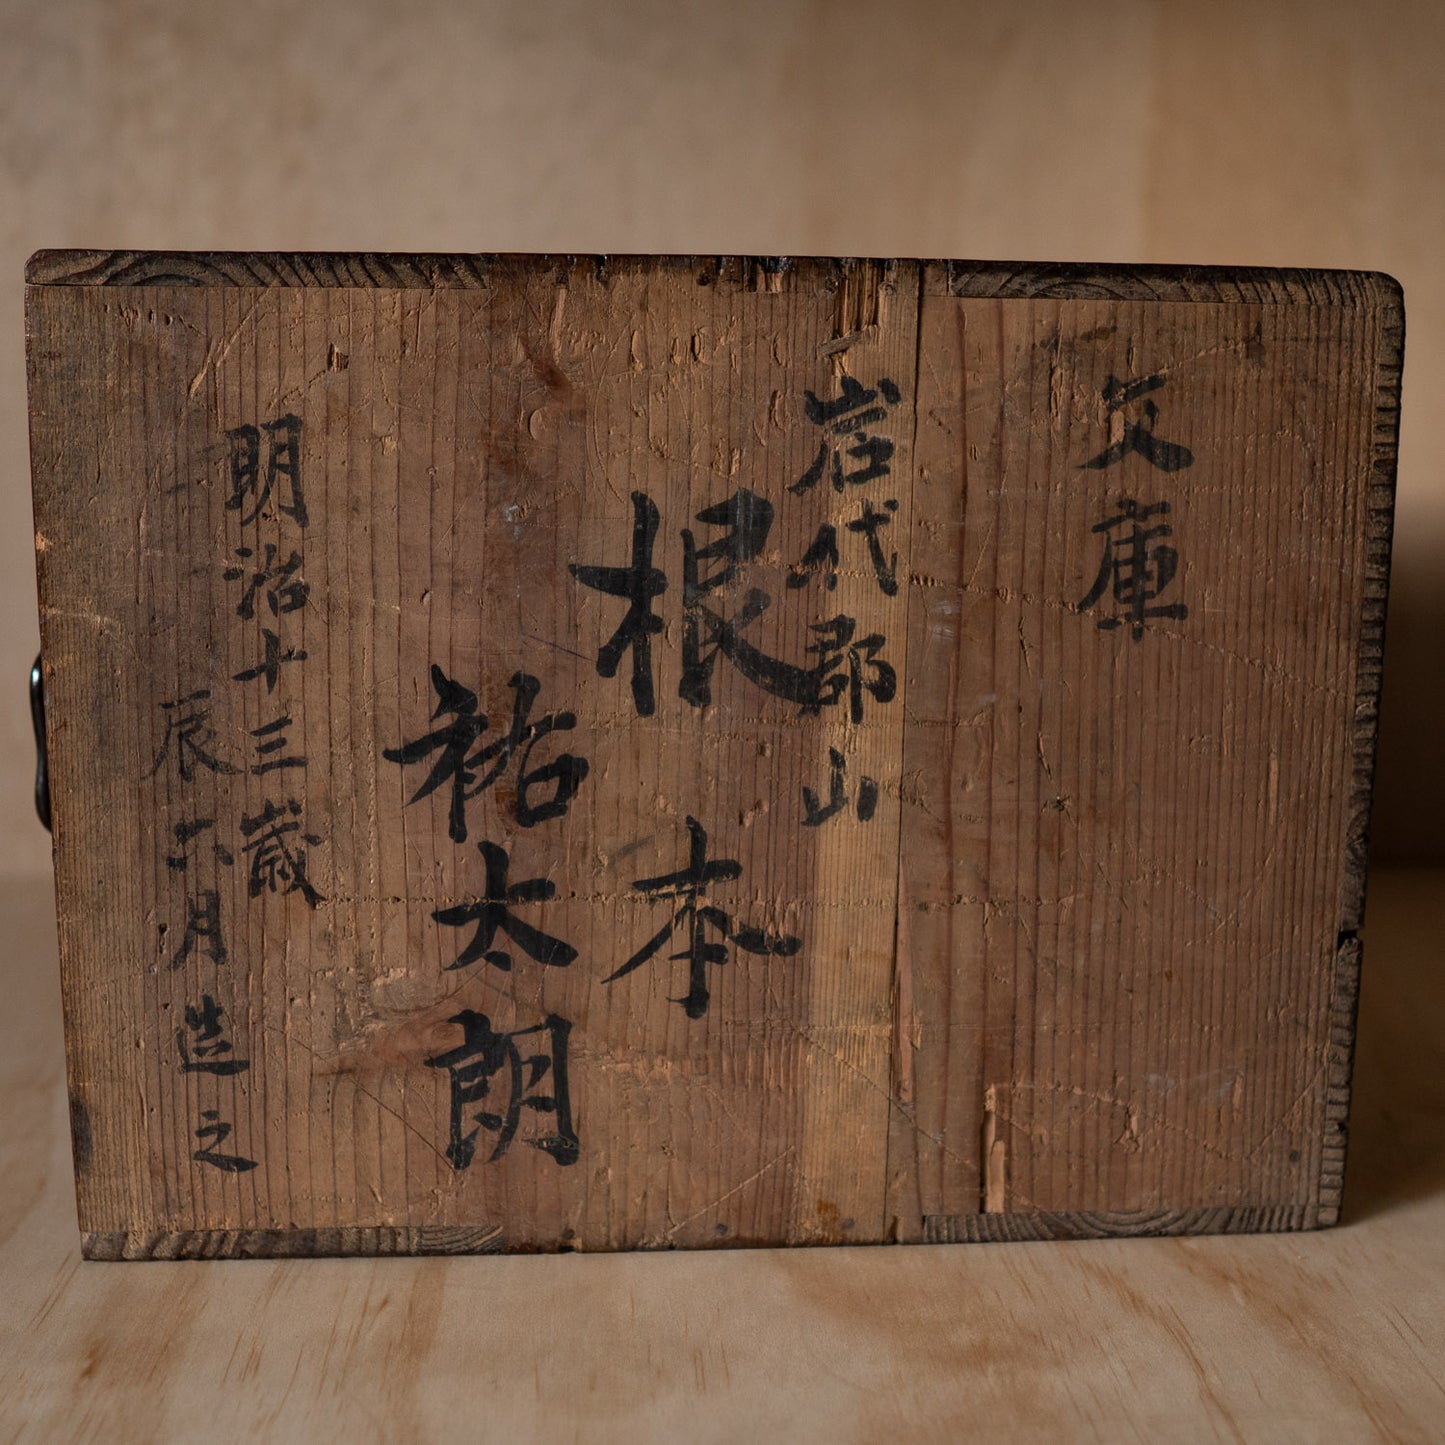 文庫
岩代郡山
根本
祐太朗
明治十三歳
辰六月造之